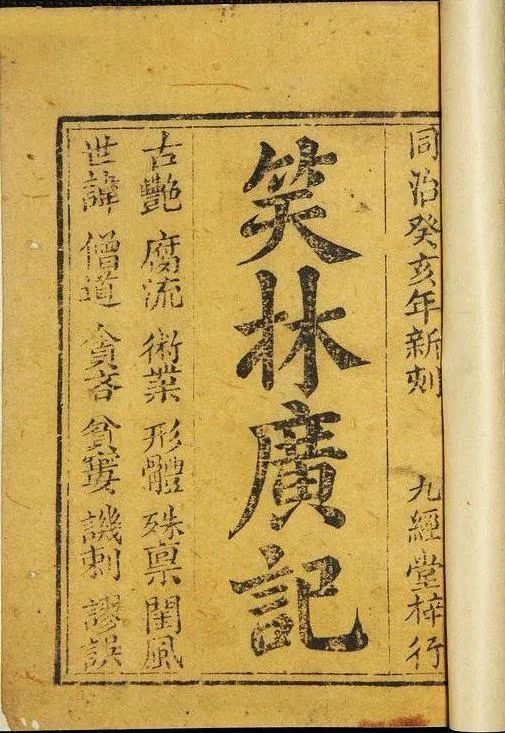 同治癸亥年新刻 九經堂梓行
笑林廣記
古艷 腐流 術業 形體 殊禀 閨風
世諱 僧道 貪吝 貧窶 譏刺 謬誤